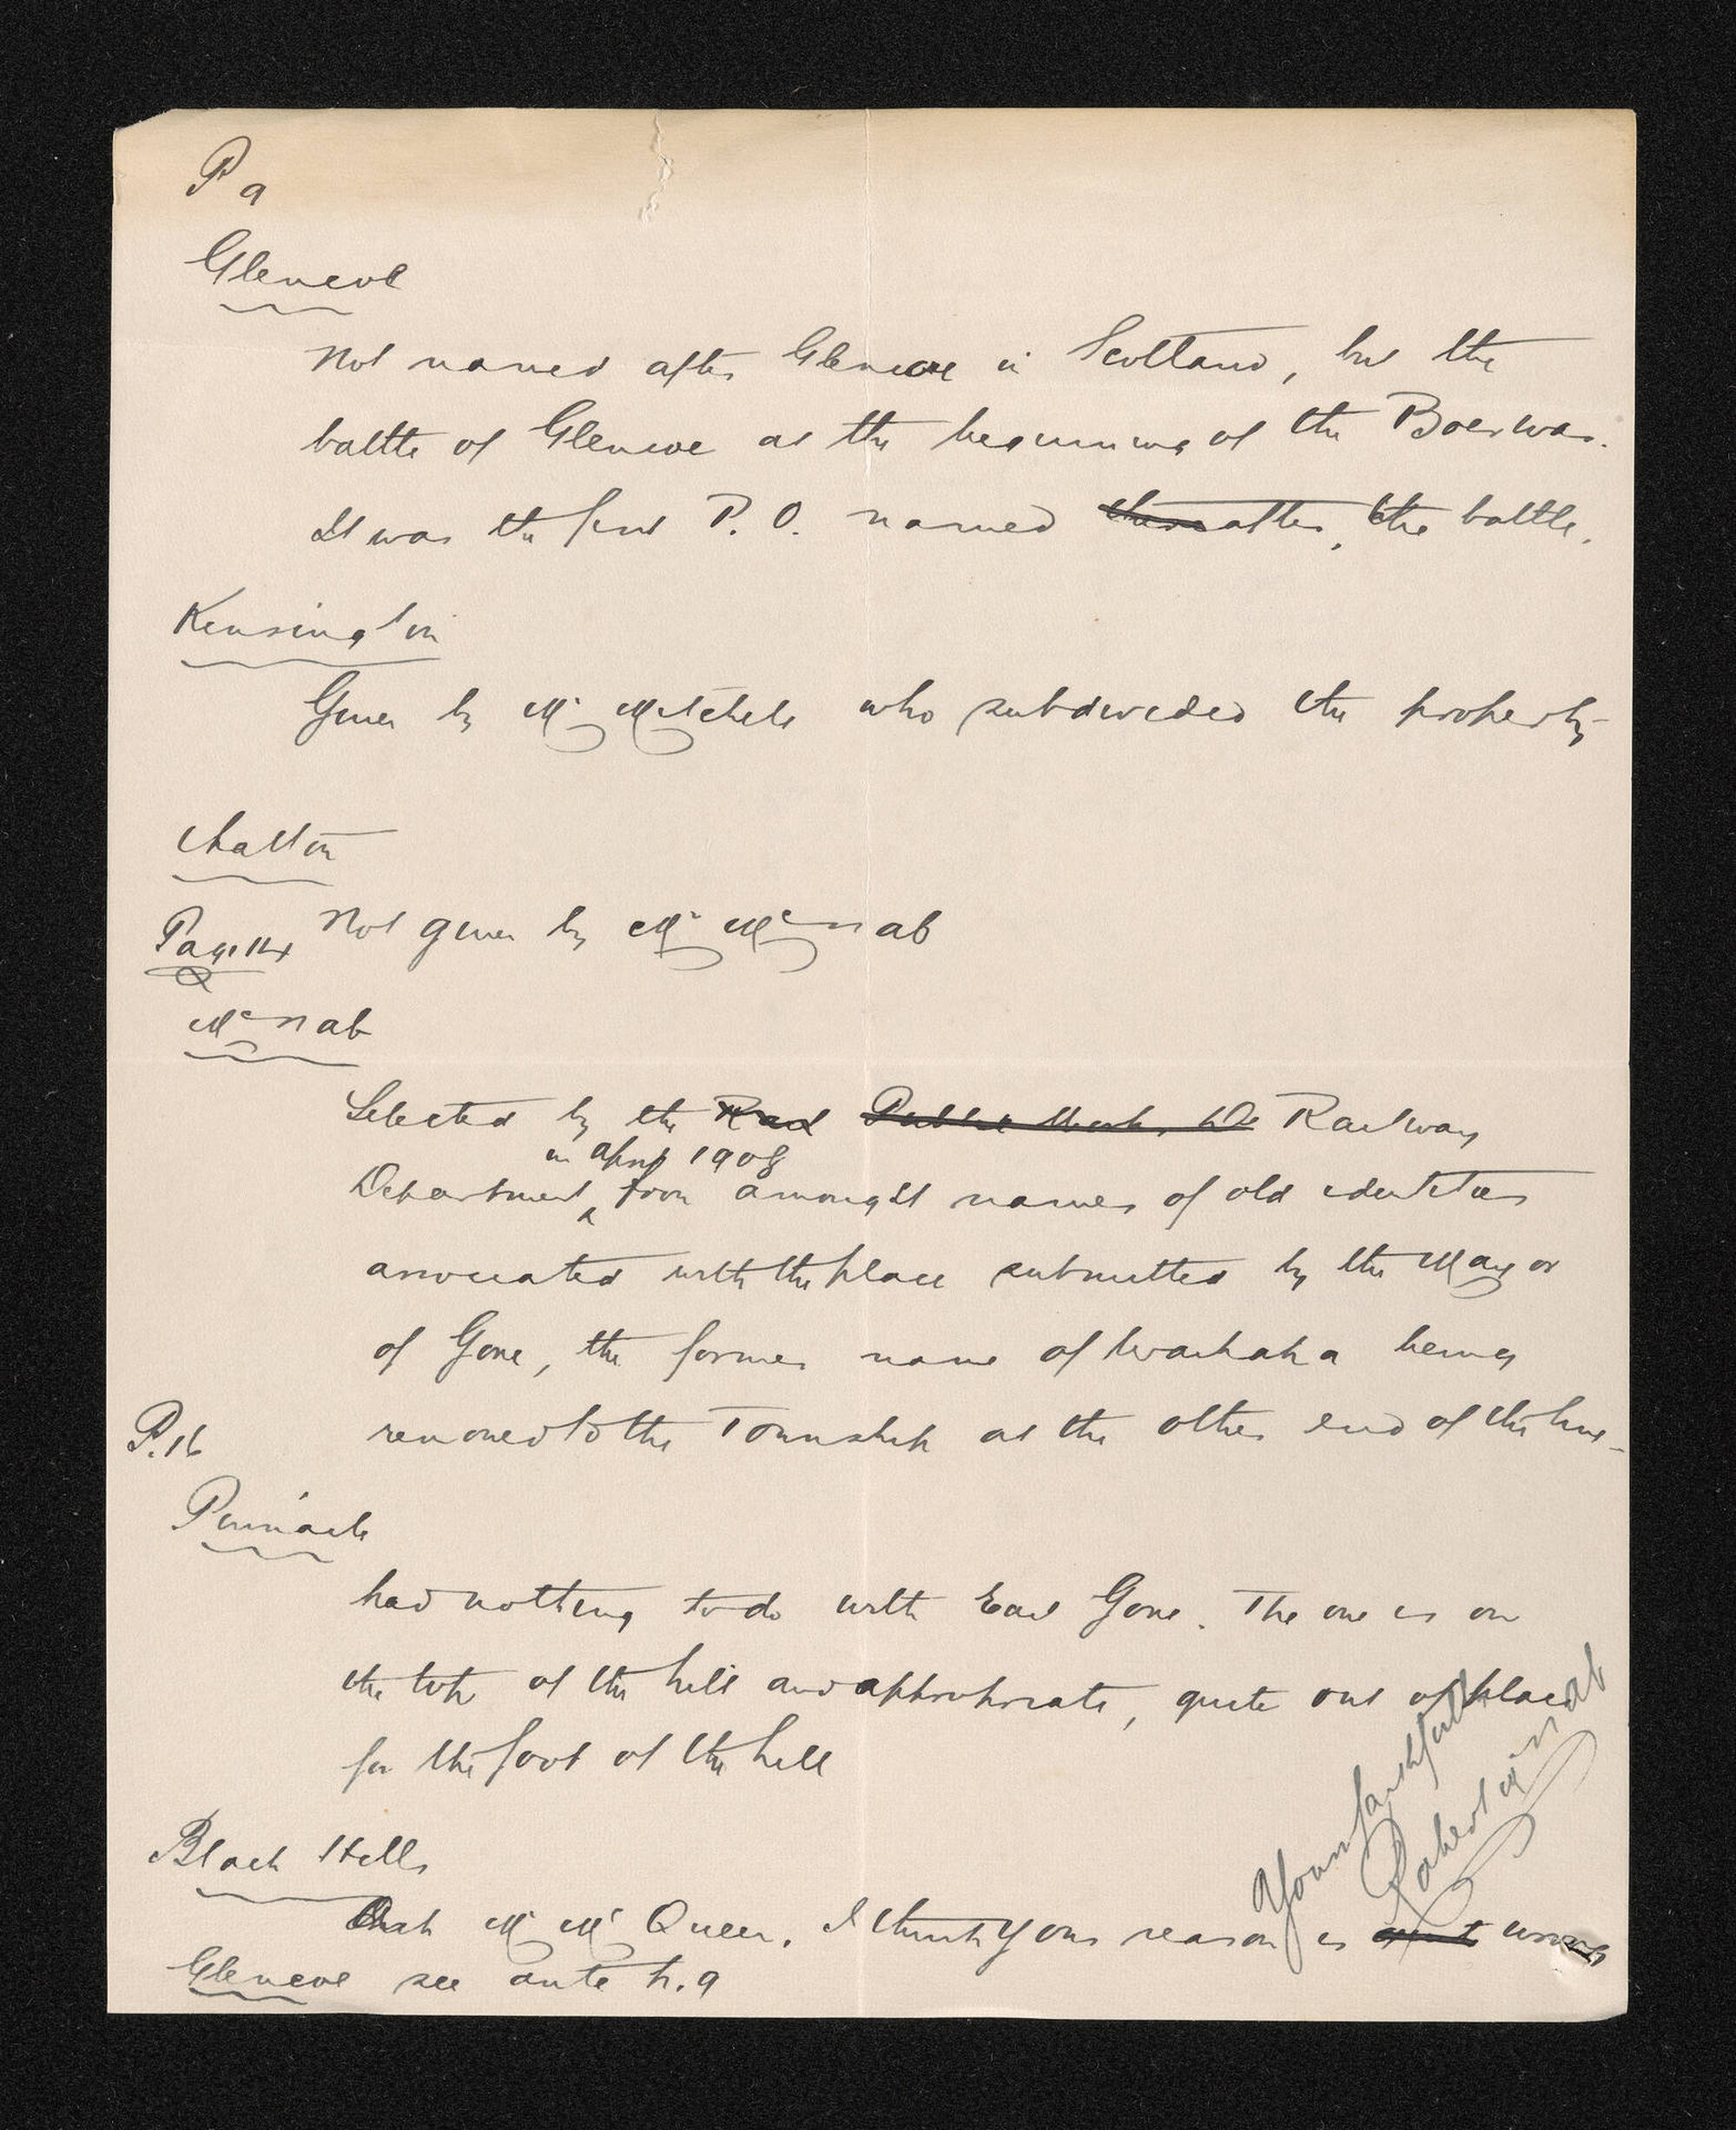 P 9
Glencoe
Not named after Glencoe in Scotland, but the
battle of Glencoe at the beginning of the Boer war.
It was the first P. O. named after the battle.
Kensington
Given by Mr Mitchell who subdivided the property
Chatton
Page 14 Not given by Mr McNab
McNab
Selected by the Rail Public Works De Railway
in April 1908
Department, from amongst names of old identities
associated with the place submitted by the Mayor
of Gore, the former name of Waikaka being
P. 16 removed to the Township at the other end of the line
Pinnacle
had nothing to do with East Gore. The one is on
the top of the hill and appropriate, quite out of place
for the foot of the hill
Yours faithfully
Robert McNab
Black Hills
Ask Mr McQueen. I think your reason is wrong
Glencoe see ante p. 9